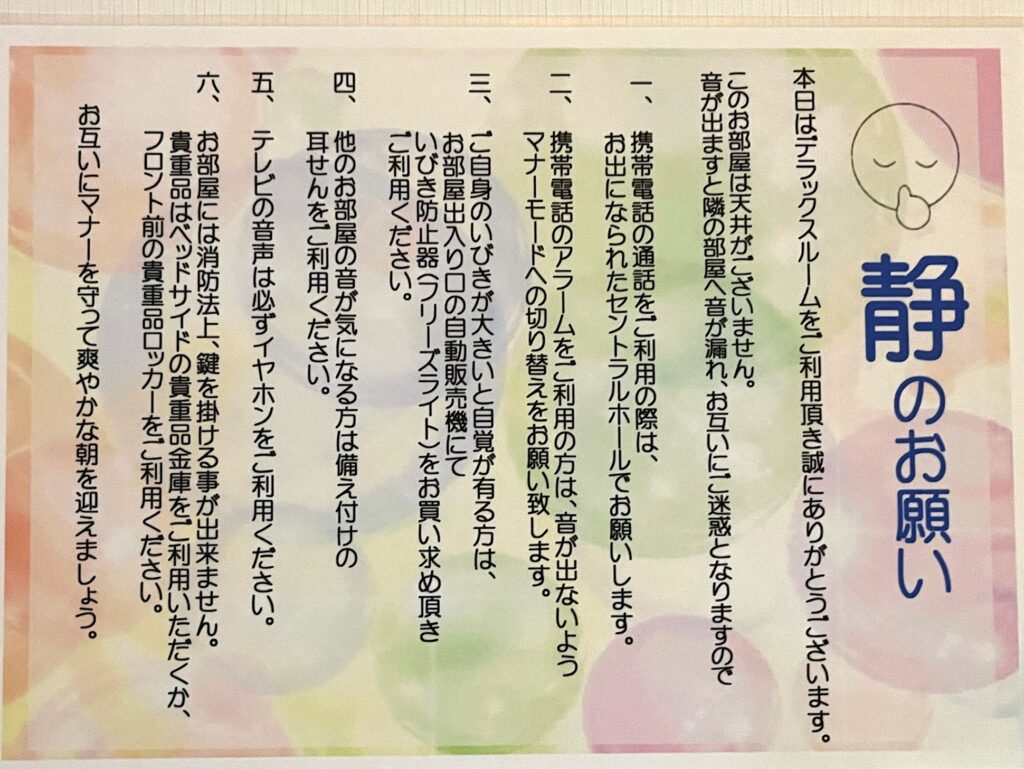 静のお願い
本日はデラックスルームをご利用頂き誠にありがとうございます。
このお部屋は天井がございません。
音が出ますと隣の部屋へ音が漏れ、お互いにご迷惑となりますので
一、携帯電話の通話をご利用の際は、
お出になられたセントラルホールでお願いします。
二、携帯電話のアラームをご利用の方は、音が出ないよう
マナーモードへの切り替えをお願い致します。
三、ご自身のいびきが大きいと自覚が有る方は、
お部屋出入り口の自動販売機にて
いびき防止器(フリーズライト)をお買い求め頂き
ご利用ください。
四、他のお部屋の音が気になる方は備え付けの
耳せんをご利用ください。
五、テレビの音声は必ずイヤホンをご利用ください。
六、お部屋には消防法上、鍵を掛ける事が出来ません。
貴重品はベッドサイドの貴重品金庫をご利用いただくか、
フロント前の貴重品ロッカーをご利用ください。
お互いにマナーを守って爽やかな朝を迎えましょう。